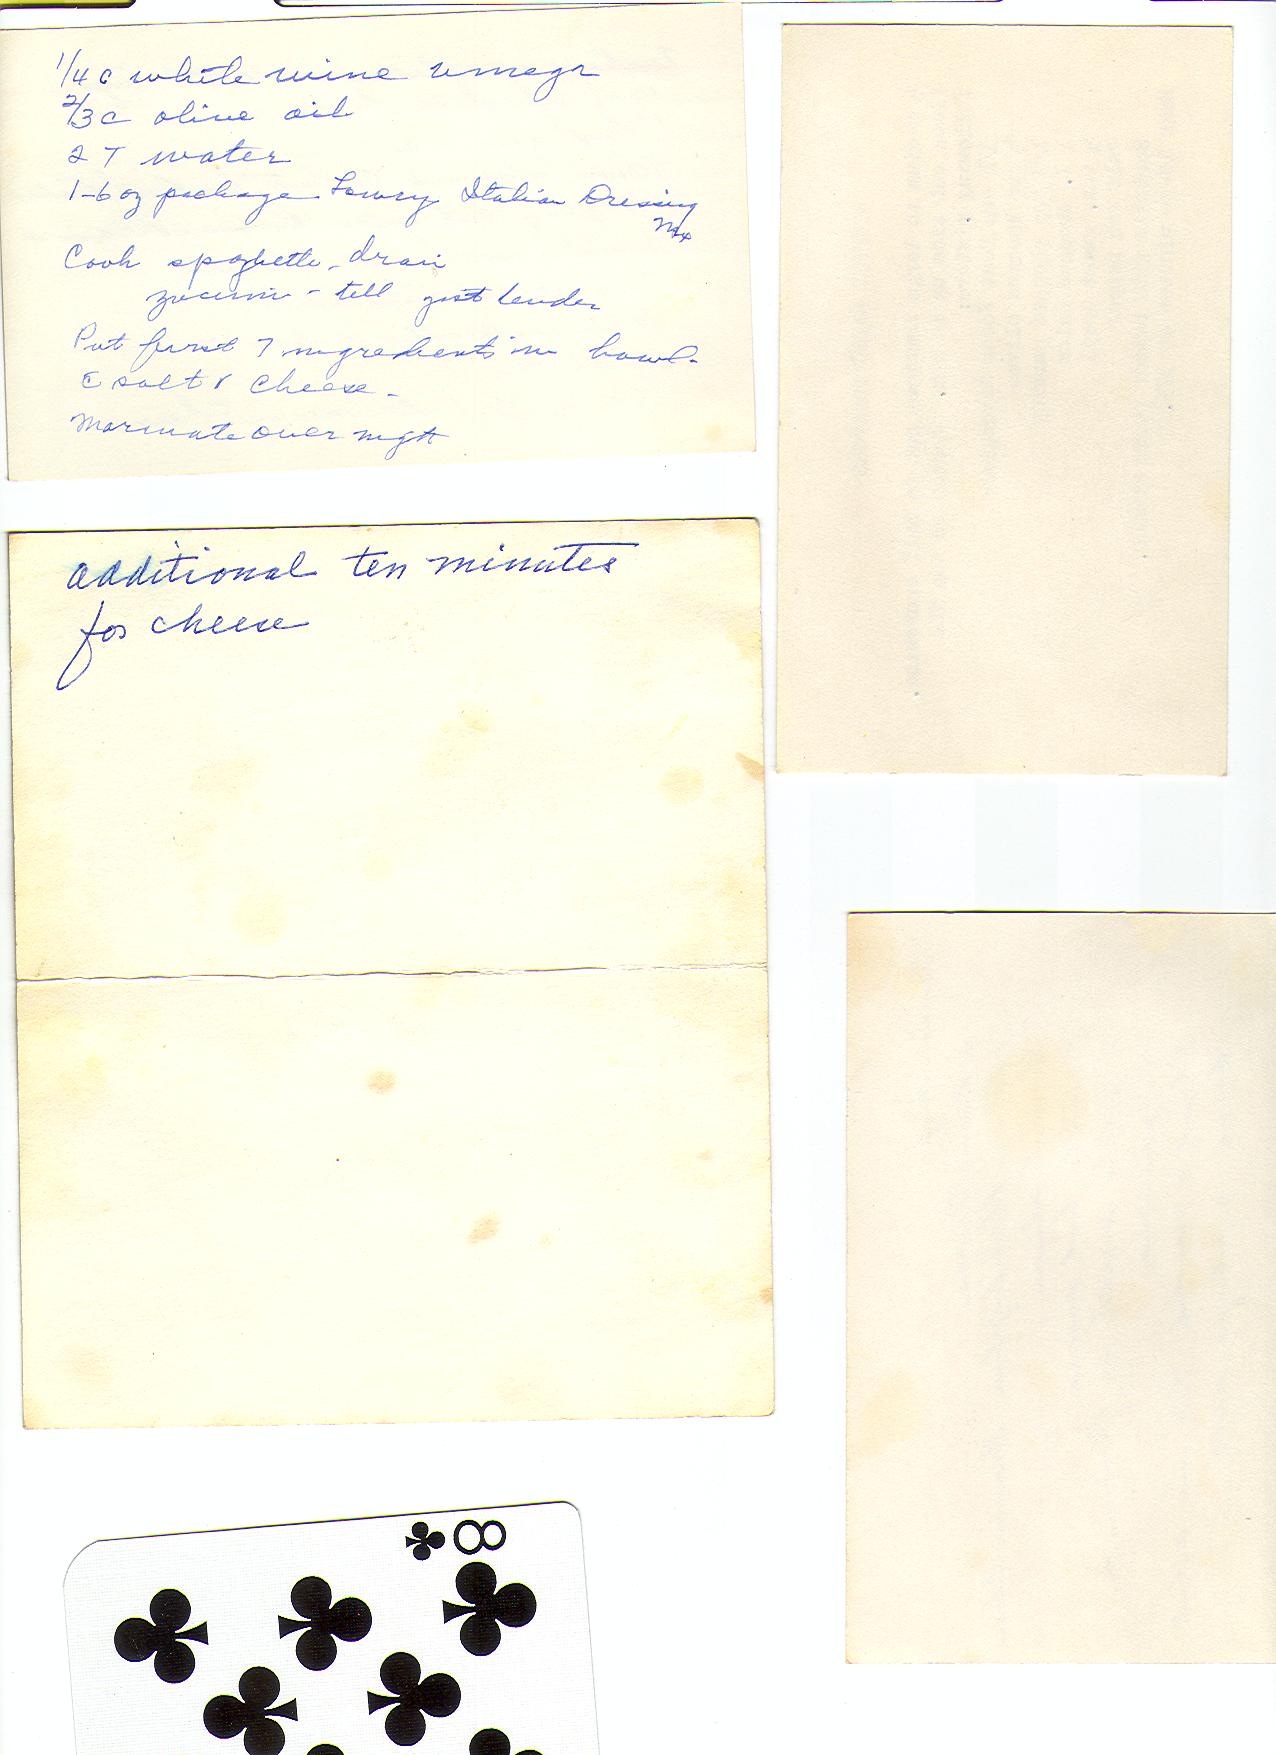 1/4 c white wine vinegr
2/3 c olive oil
2 T water
1-6 oz package Lowry Italian Dressing
Mix
Cook spaghetti - drain
zuccini - till just tender
Put first 7 ingredients in bowl -
c̄ salt & cheese -
Marinate over night
additional ten minutes
for cheese
8